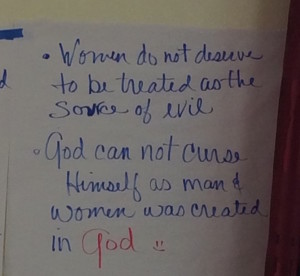 • Women do not deserve
to be treated as the
Source of evil
• God can not curse
Himself as man &
women was created
in God